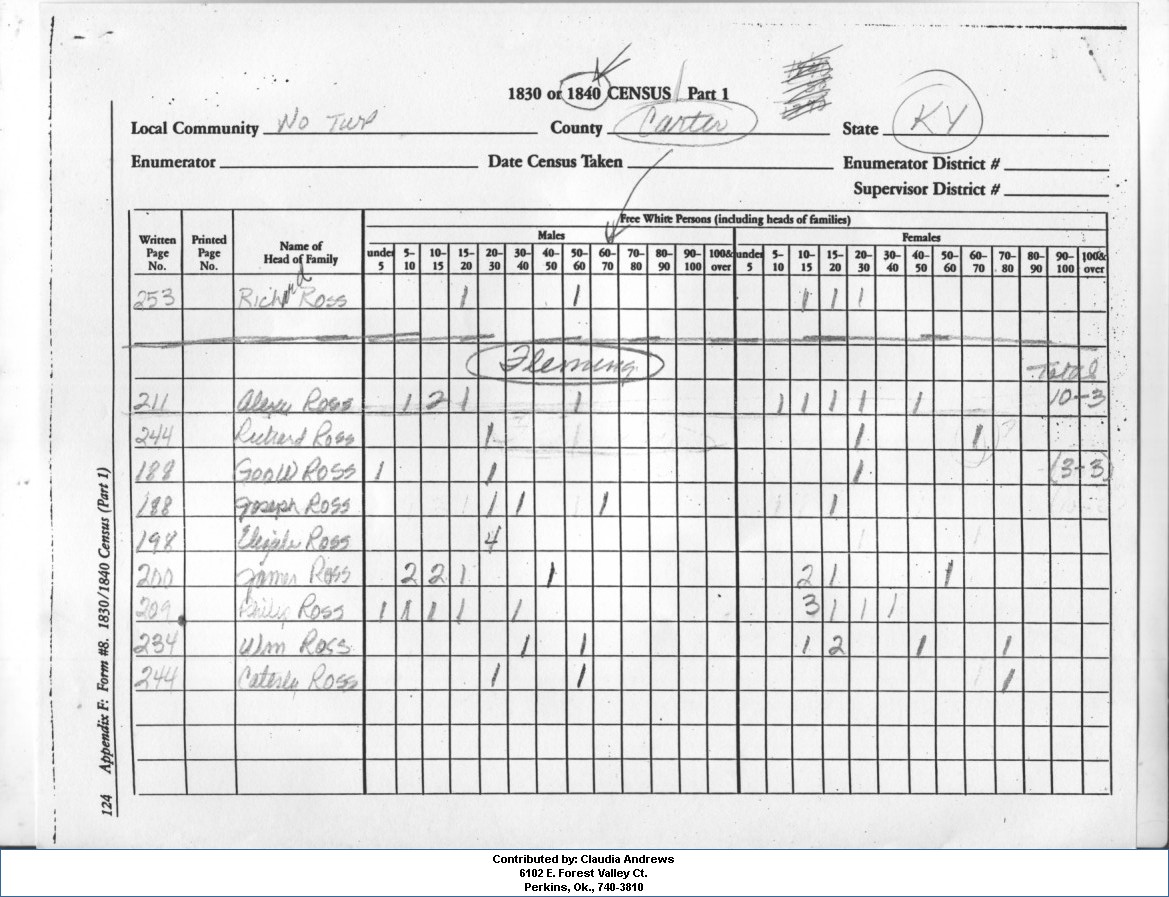 1830 or 1840 CENSUS Part 1
Local Community No Twp County Carter State KY
Enumerator Date Census Taken Enumerator District #
Supervisor District #
Free White Persons (including heads of families)
Males Females
Written Page No. Printed Page No. Name of Head of Family under 5 5–10 10–15 15–20 20–30 30–40 40–50 50–60 60–70 70–80 80–90 90–100 100& over under 5 5–10 10–15 15–20 20–30 30–40 40–50 50–60 60–70 70–80 80–90 90–100 100& over
253 Richard Ross 1 1 1 1 1
Fleming
Total
211 Ross 1 2 1 1 1 1 1 1 1 1 10-3
244 Richard Ross 1 1 1 ?
188 Ross 1 1 1 (3-3)
188 Joseph Ross 1 1 1 1
198 Elijah Ross 4
200 James Ross 2 2 1 1 2 1 1
209 Philip Ross 1 1 1 1 1 3 1 1 1
234 Wm Ross 1 1 1 2 1 1
244 Ross 1 1 1
124 Appendix F: Form #8. 1830/1840 Census (Part 1)
Contributed by: Claudia Andrews
6102 E. Forest Valley Ct.
Perkins, Ok., 740-3810